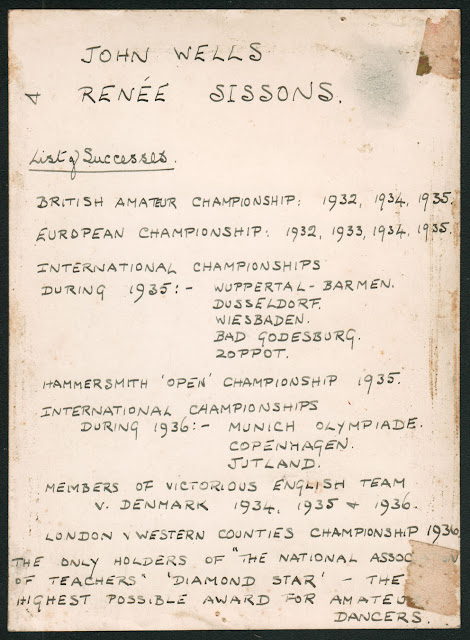 JOHN WELLS
& RENÉE SISSONS.
List of Successes.
BRITISH AMATEUR CHAMPIONSHIP: 1932, 1934, 1935.
EUROPEAN CHAMPIONSHIP: 1932, 1933, 1934, 1935.
INTERNATIONAL CHAMPIONSHIPS
DURING 1935:- WUPPERTAL-BARMEN.
DUSSELDORF.
WIESBADEN.
BAD GODESBURG.
ZOPPOT.
HAMMERSMITH 'OPEN' CHAMPIONSHIP 1935.
INTERNATIONAL CHAMPIONSHIPS
DURING 1936:- MUNICH OLYMPIADE.
COPENHAGEN.
JUTLAND.
MEMBERS OF VICTORIOUS ENGLISH TEAM
V. DENMARK 1934, 1935 & 1936.
LONDON V WESTERN COUNTIES CHAMPIONSHIP 1936
THE ONLY HOLDERS OF "THE NATIONAL
OF TEACHERS" 'DIAMOND STAR' - THE
HIGHEST POSSIBLE AWARD FOR
DANCERS.